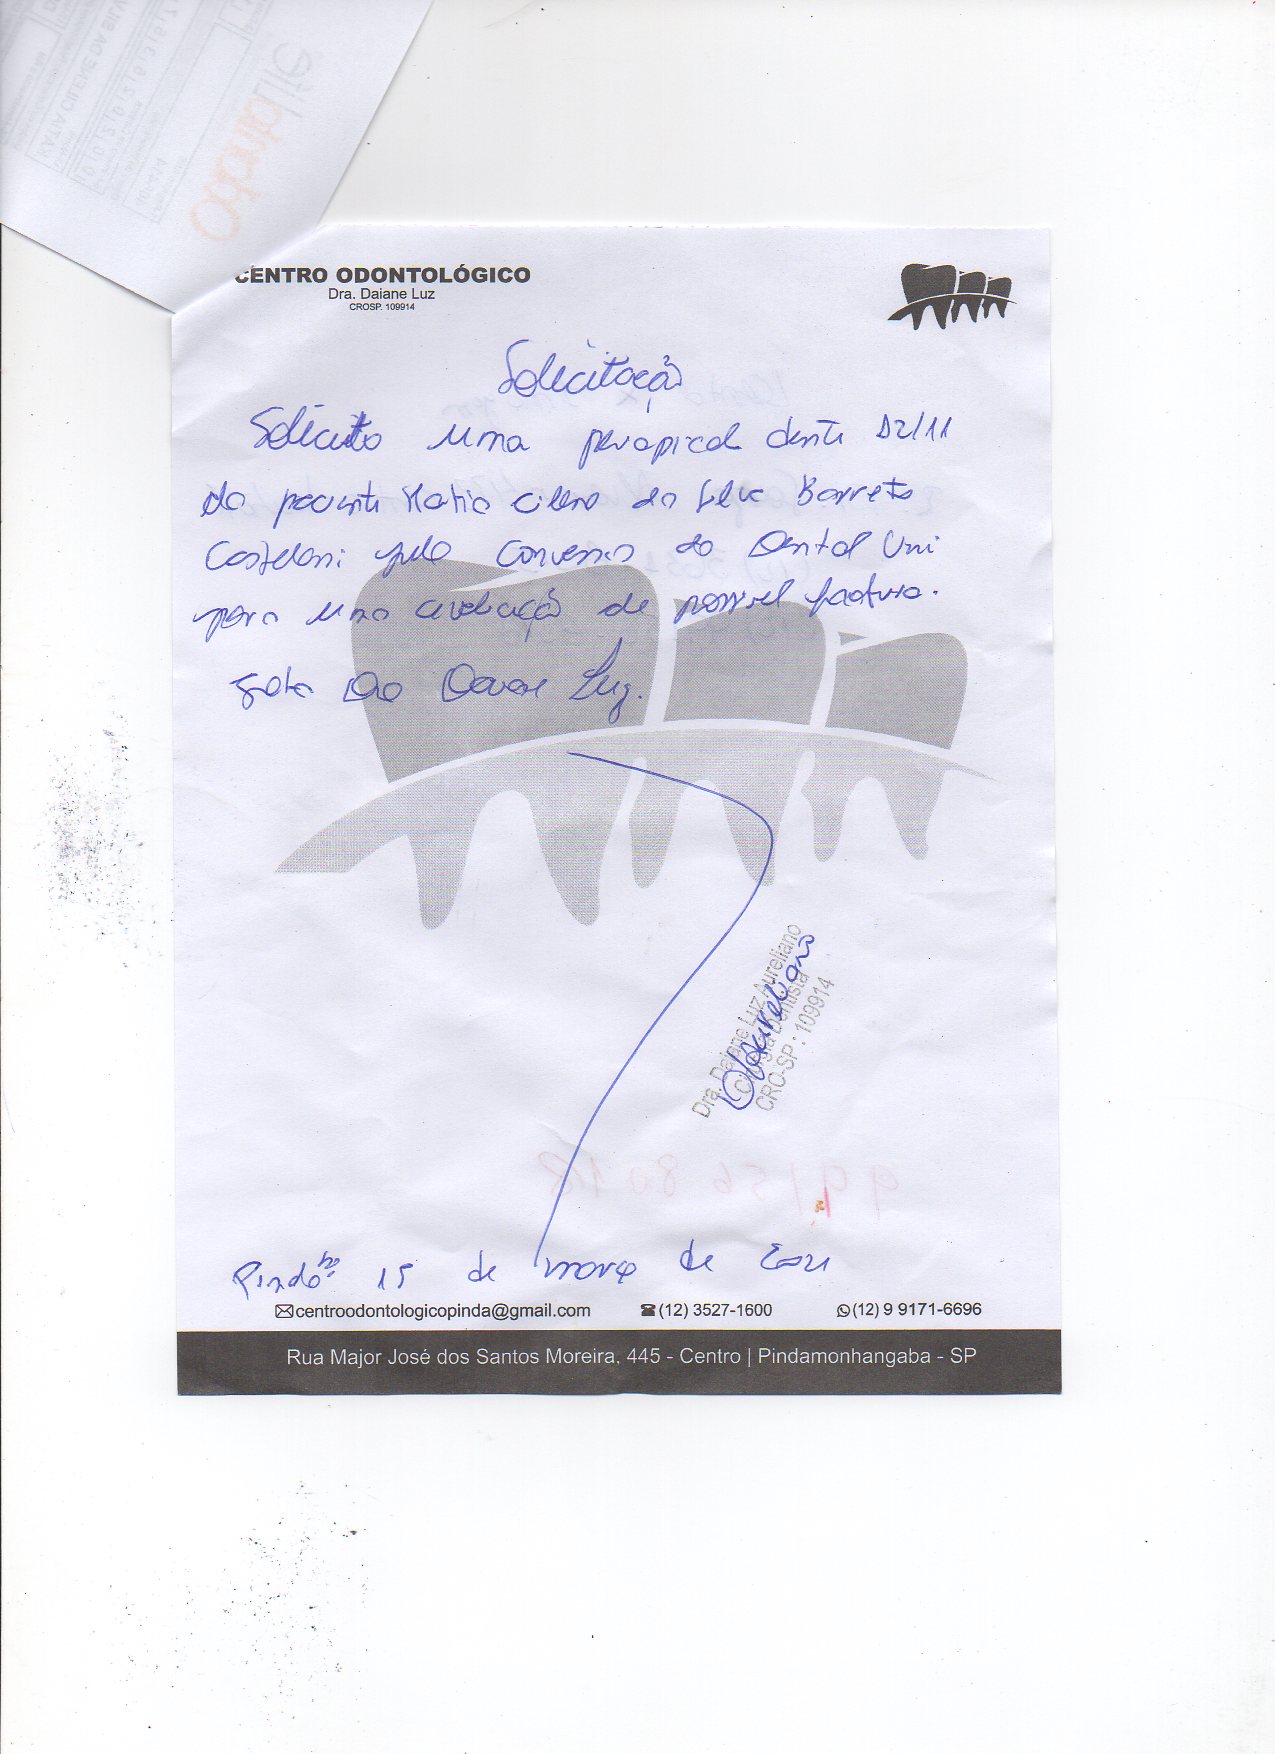 CENTRO ODONTOLÓGICO
Dra. Daiane Luz
CROSP. 109914
Solicitação
Solicito uma periapical dente 12/11
da paciente Katia Cilene da Silva Barreto
Casteloni pelo convenio da Dental Uni
para uma avaliação de possivel fratura.
Dra Daiane Luz.
Dra. Daiane Luz Aureliano
Cirurgiã Dentista
CRO-SP: 109914
Pinda 15 de março de 2021
centroodontologicopinda@gmail.com (12) 3527-1600 (12) 9 9171-6696
Rua Major José dos Santos Moreira, 445 - Centro | Pindamonhangaba - SP